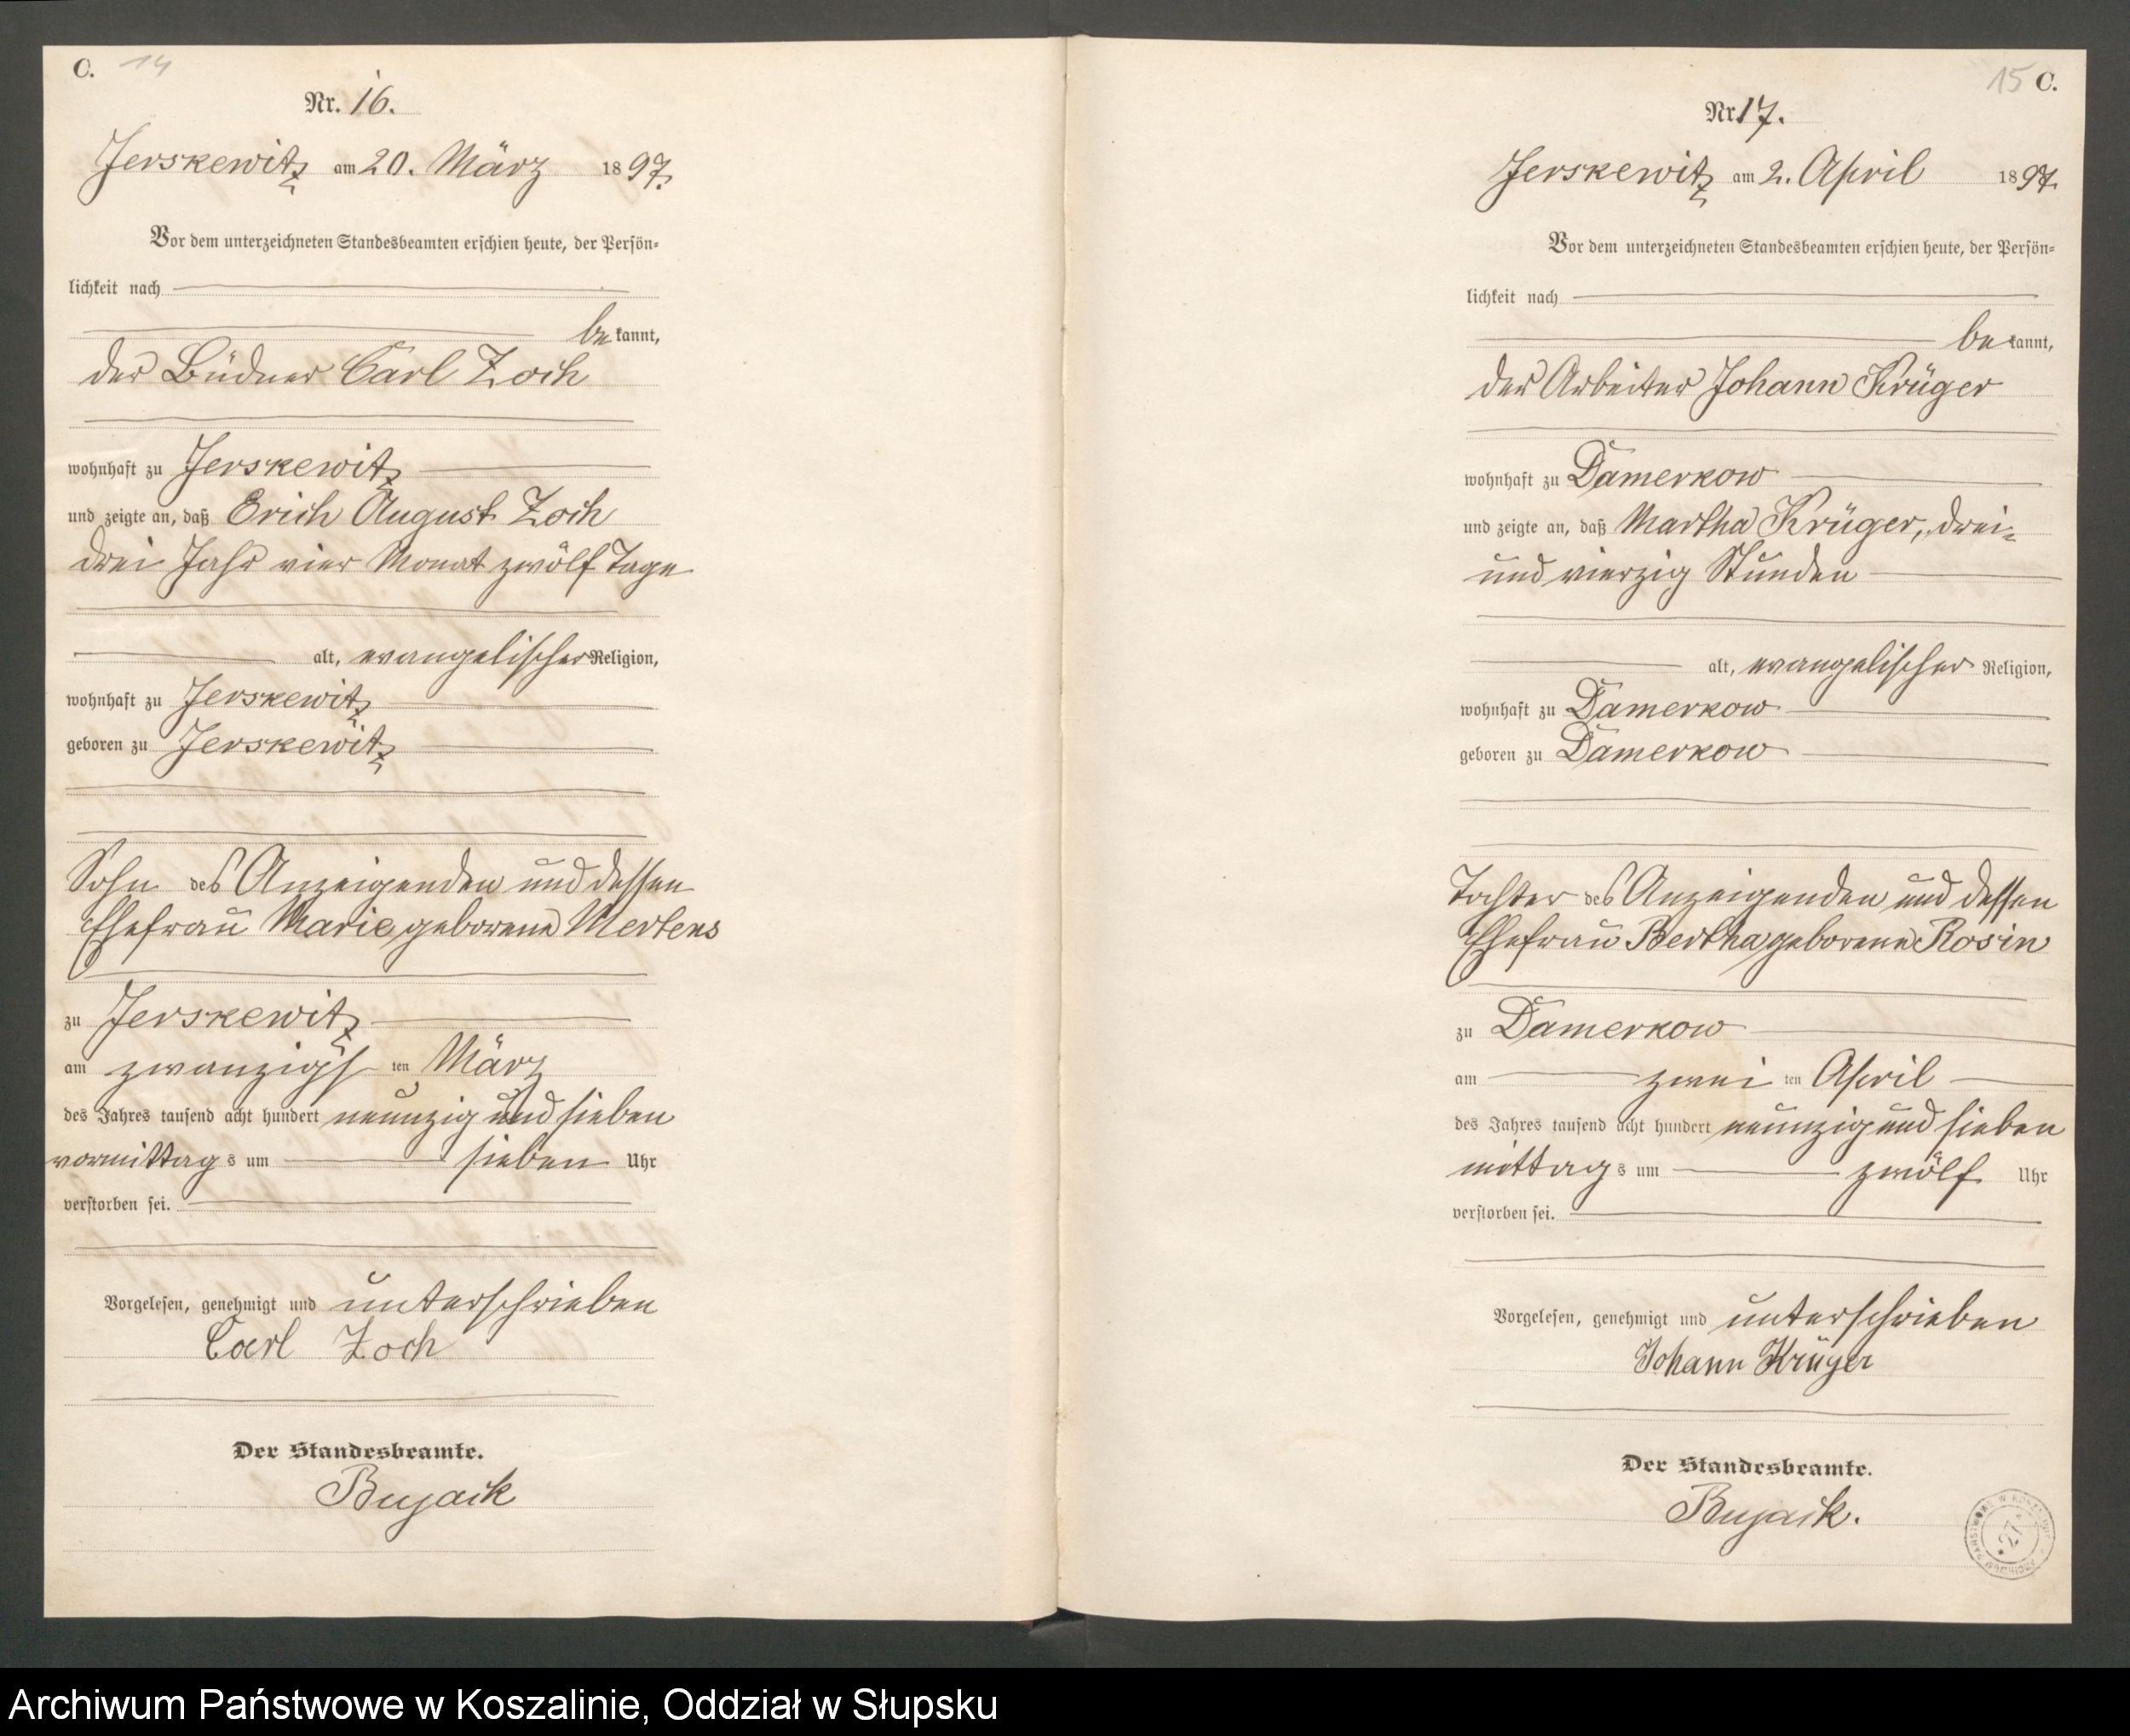 C. 14
Nr. 16.
Jerskewitz am 20. März 1897.
Vor dem unterzeichneten Standesbeamten erschien heute, der Persön-
lichkeit nach
be kannt,
der Büdner Carl Zoch
wohnhaft zu Jerskewitz
und zeigte an, daß Erich August Zoch
drei Jahr vier Monat zwölf Tage
alt, evangelischer Religion,
wohnhaft zu Jerskewitz
geboren zu Jerskewitz
Sohn des Anzeigenden und dessen
Ehefrau Marie geborene Mertens
zu Jerskewitz
am zwanzigs ten März
des Jahres tausend acht hundert neunzig und sieben
vormittag s um sieben Uhr
verstorben sei.
Vorgelesen, genehmigt und unterschrieben
Carl Zoch
Der Standesbeamte.
Bujack
15 C.
Nr. 17.
Jerskewitz am 2. April 1897.
Vor dem unterzeichneten Standesbeamten erschien heute, der Persön-
lichkeit nach
be kannt,
der Arbeiter Johann Krüger
wohnhaft zu Damerkow
und zeigte an, daß Martha Krüger, drei-
und vierzig Stunden
alt, evangelischer Religion,
wohnhaft zu Damerkow
geboren zu Damerkow
Tochter des Anzeigenden und dessen
Ehefrau Bertha geborene Rosin
zu Damerkow
am zwei ten April
des Jahres tausend acht hundert neunzig und sieben
mittag s um zwölf Uhr
verstorben sei.
Vorgelesen, genehmigt und unterschrieben
Johann Krüger
Der Standesbeamte.
Bujack.
27
Archiwum Państwowe w Koszalinie, Oddział w Słupsku